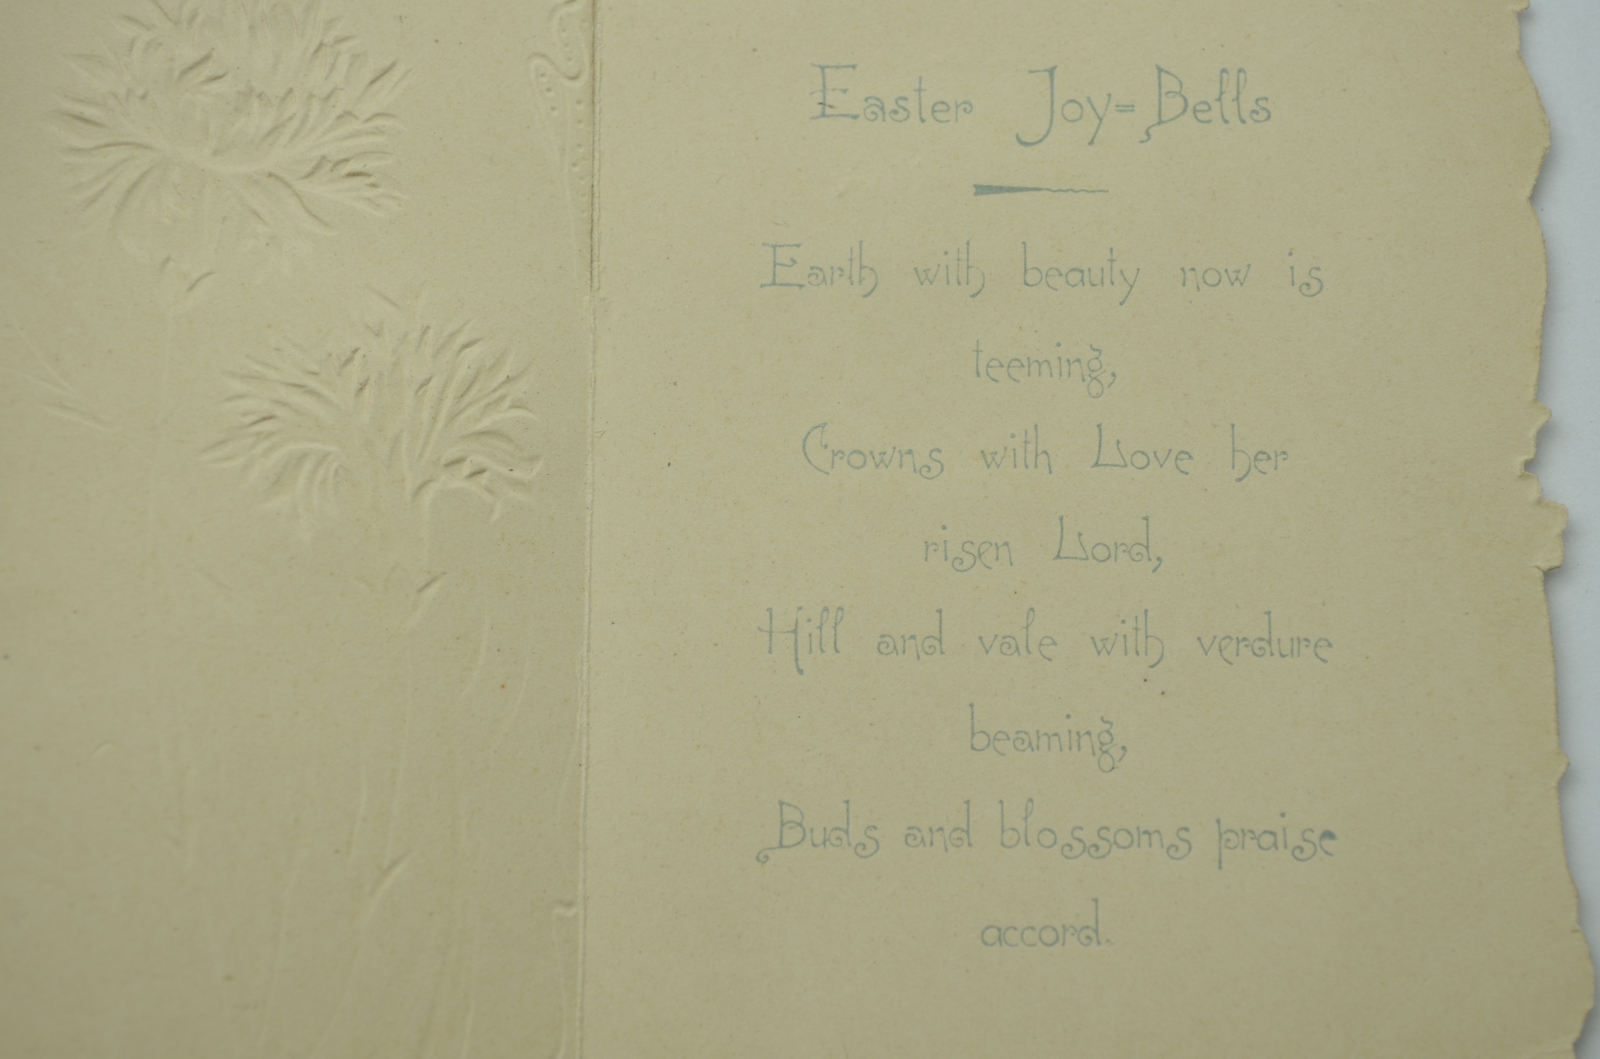 Easter Joy=Bells
Earth with beauty now is
teeming,
Crowns with Love her
risen Lord,
Hill and vale with verdure
beaming,
Buds and blossoms praise
accord.